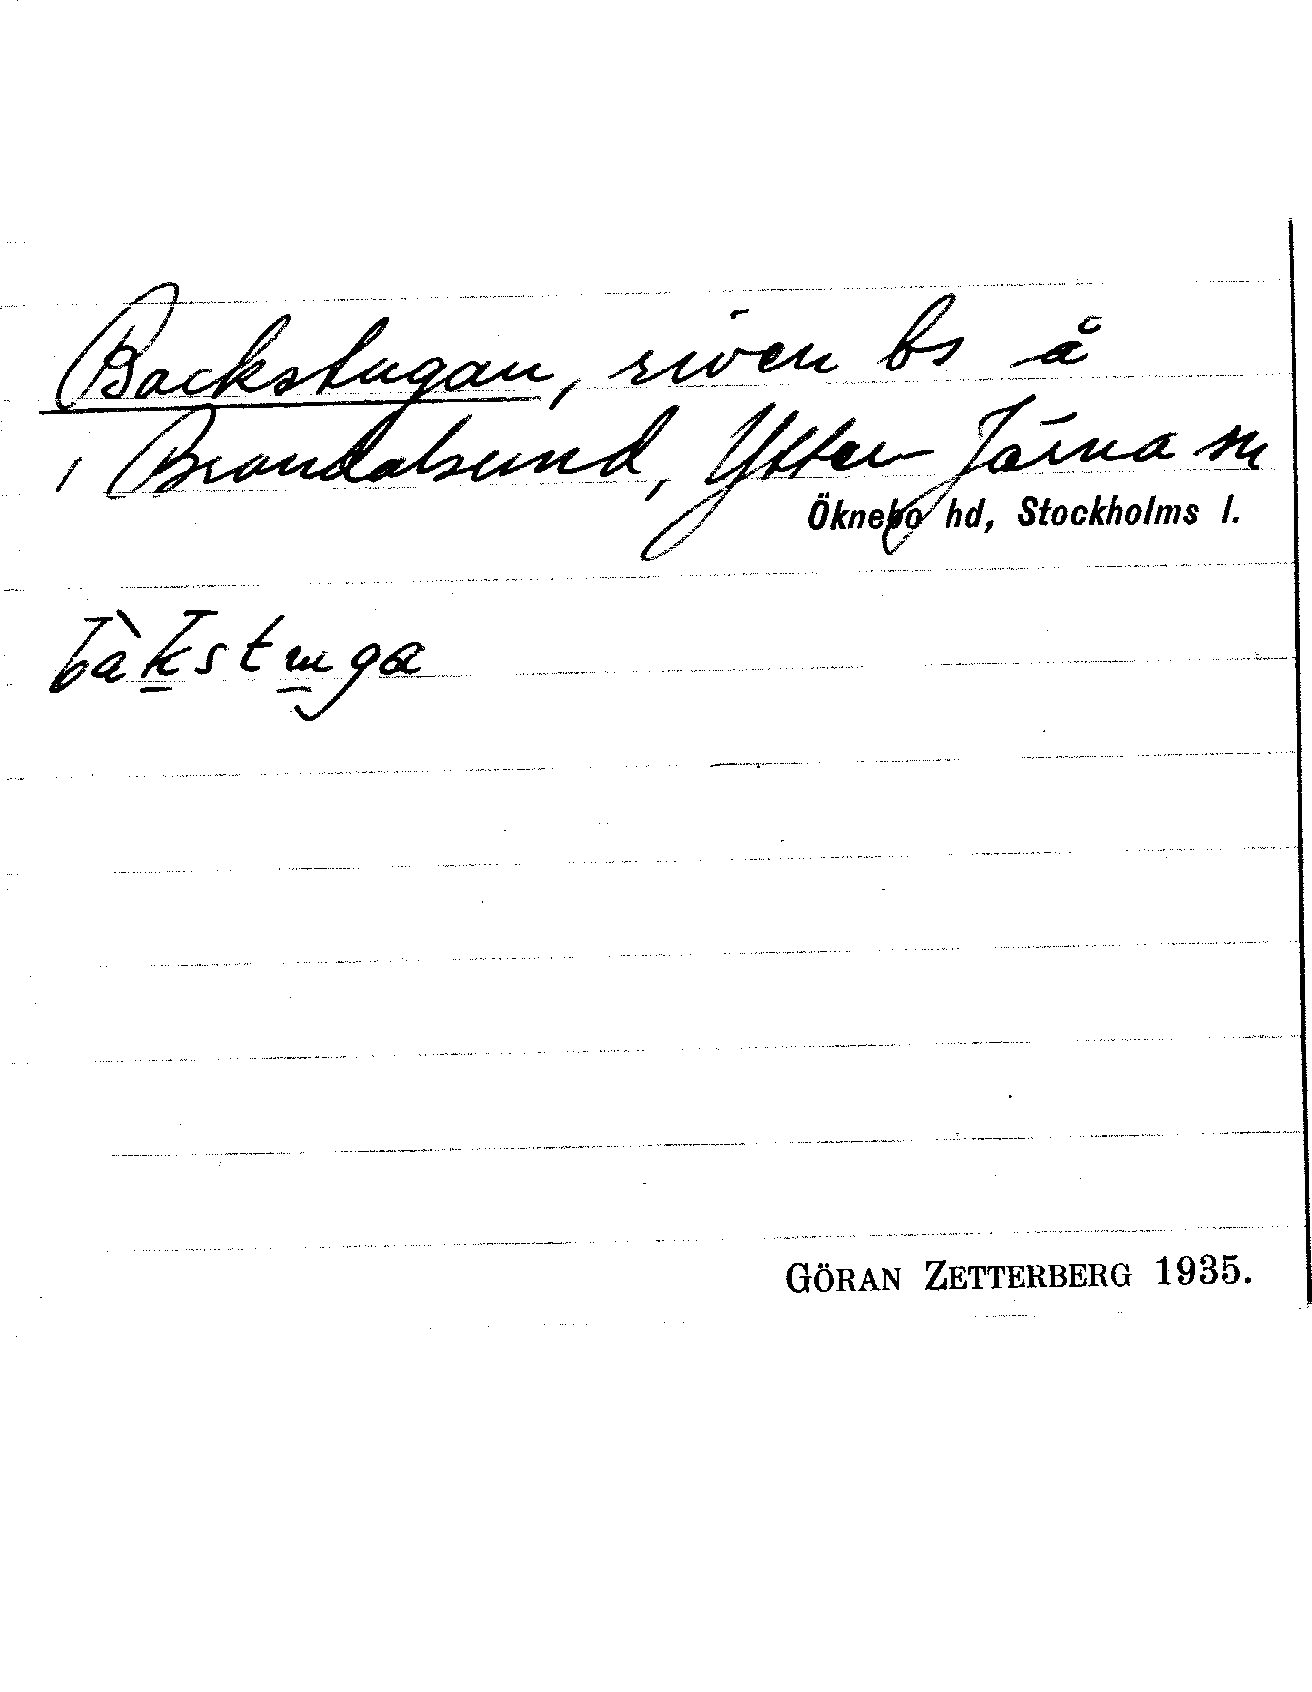 Backstugan, riven bs å
i Brandalsund, Ytter-Järna sn
Öknebo hd, Stockholms l.
bàkstuga
GÖRAN ZETTERBERG 1935.